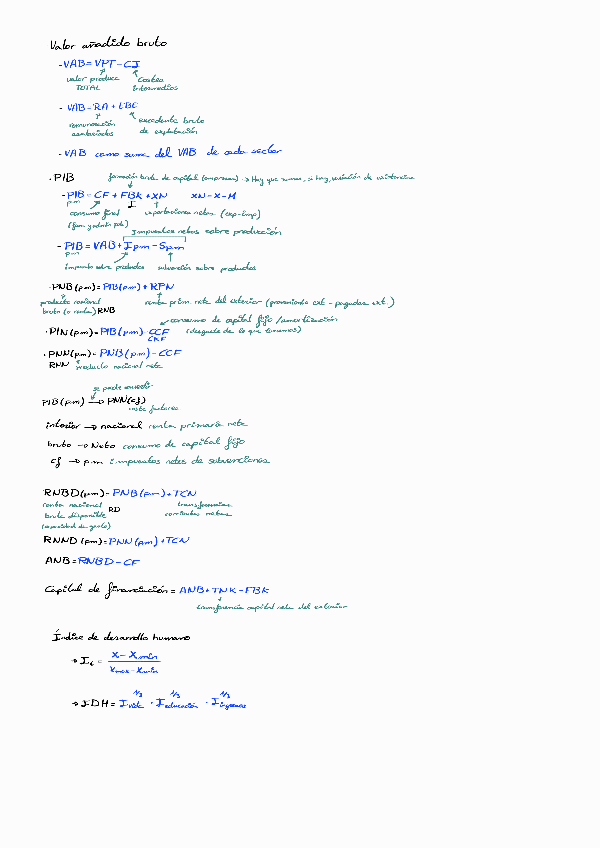 Valor añadido bruto
- VAB = VPT - CI
valor produce Costes
TOTAL Intermedios
- VAB = RA + EBE
remuneración excedente bruto
asalariados de explotación
- VAB como suma del VAB de cada sector
· PIB formación bruta de capital (empresas) → Hay que sumar, si hay, variación de existencias
- PIB = CF + FBK + XN XN = X - M
p.m I
consumo final exportaciones netas (exp-imp)
Impuestos netos sobre producción
- PIB = VAB + Ipm - Spm
p.m
impuesto sobre productos subvención sobre productos
· PNB(p.m) = PIB(p.m) + RPN
producto nacional renta prim. neta del exterior (proveniente ext - pagadas ext.)
bruto (o renta) RNB
consumo de capital fijo /amortización
· PIN(p.m) = PIB(p.m) - CCF (desgaste de lo que tenemos)
CKF
· PNN(p.m) = PNB(p.m) - CCF
RNN producto nacional neto
se puede
PIB(p.m) → PNN(cf)
coste factores
interior → nacional renta primaria neta
bruto → Neto consumo de capital fijo
cf → p.m impuestos netos de subvenciones
RNBD(p.m) = PNB(p.m) + TCN
renta nacional transferencias
bruta disponible RD corrientes netas
(capacidad de gasto)
RNND(p.m) = PNN(p.m) + TCN
ANB = RNBD - CF
Capital de financiación = ANB + TNK - FBK
transferencia capital neta del exterior
Índice de desarrollo humano
→ I = x - xmín
xmax - xmín
→ IDH = I vida 1/3 · I educación 1/3 · I ingresos 1/3